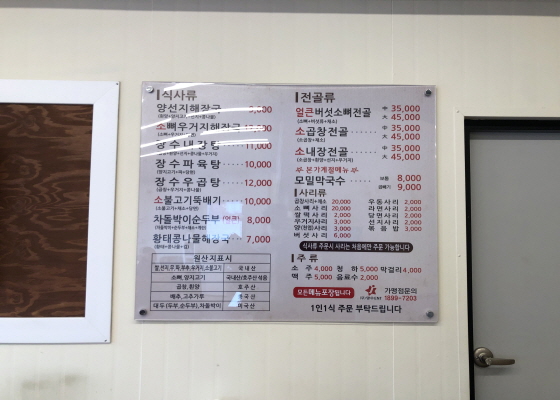 식사류
양선지해장국
소뼈우거지해장국
장수내장탕 11,000
장수파육탕 10,000
장수우곱탕 12,000
소불고기뚝배기 10,000
차돌박이순두부 8,000
황태콩나물해장국 7,000
원산지표시
국내산
소뼈,양지고기 국내산/호주산 섞음
곱창,황량 호주산
배추,고추가루 중국산
대두(두부,순두부),차돌박이 미국산
전골류
얼큰버섯소뼈전골 中 35,000
大 45,000
소곱창전골 中 35,000
大 45,000
소내장전골 中 35,000
大 45,000
본가계절메뉴
모밀막국수 보통 8,000
곱빼기 9,000
사리류
곱창사리+채소 20,000 우동사리 2,000
소뼈사리 20,000 라면사리 2,000
쌀떡사리 2,000 당면사리 2,000
우거지사리 3,000 선지사리 2,000
양(천엽)사리 3,000 볶음밥 3,000
버섯사리 6,000
식사류 주문시 사리는 처음에만 주문 가능합니다
주류
소주 4,000 청하 5,000 막걸리 4,000
맥주 5,000 음료수 2,000
모든메뉴포장됩니다
가맹점문의
1899-7203
1인1식 주문 부탁드립니다